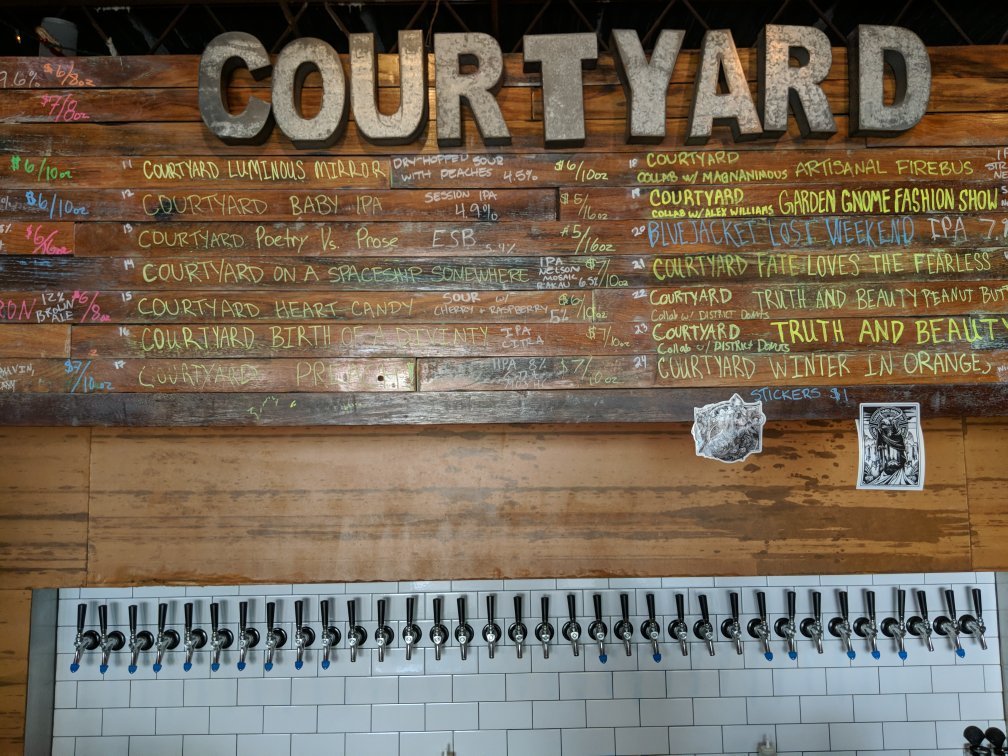 COURTYARD
9.6% $6/8oz
$7/8oz
$6/10oz
$6/10oz
$6/16oz
12% $6/8oz
$7/10oz
11 COURTYARD LUMINOUS MIRROR DRY-HOPPED SOUR WITH PEACHES 4.5% $6/10oz
12 COURTYARD BABY IPA SESSION IPA 4.9% $5/16oz
13 COURTYARD Poetry Vs. Prose ESB 5.4% $5/16oz
14 COURTYARD ON A SPACESHIP SOMEWHERE IPA NELSON MOSAIC RAKAU 6.5% $7/10oz
15 COURTYARD HEART CANDY SOUR w/ CHERRY + RASPBERRY 5% $6/10oz
16 COURTYARD BIRTH OF A DIVINITY IPA CITRA $7/10oz
17 COURTYARD IIPA 8% $7/10oz
18 COURTYARD COLLAB w/ MAGNANIMOUS ARTISANAL FIREBUS
19 COURTYARD COLLAB w/ ALEX WILLIAMS GARDEN GNOME FASHION SHOW
20 BLUEJACKET LOST WEEKEND IPA
21 COURTYARD FATE LOVES THE FEARLESS
22 COURTYARD Collab w/ DISTRICT DONUTS TRUTH AND BEAUTY PEANUT BUT
23 COURTYARD Collab w/ DISTRICT DONUTS TRUTH AND BEAUT
24 COURTYARD WINTER IN ORANGE,
STICKERS $1